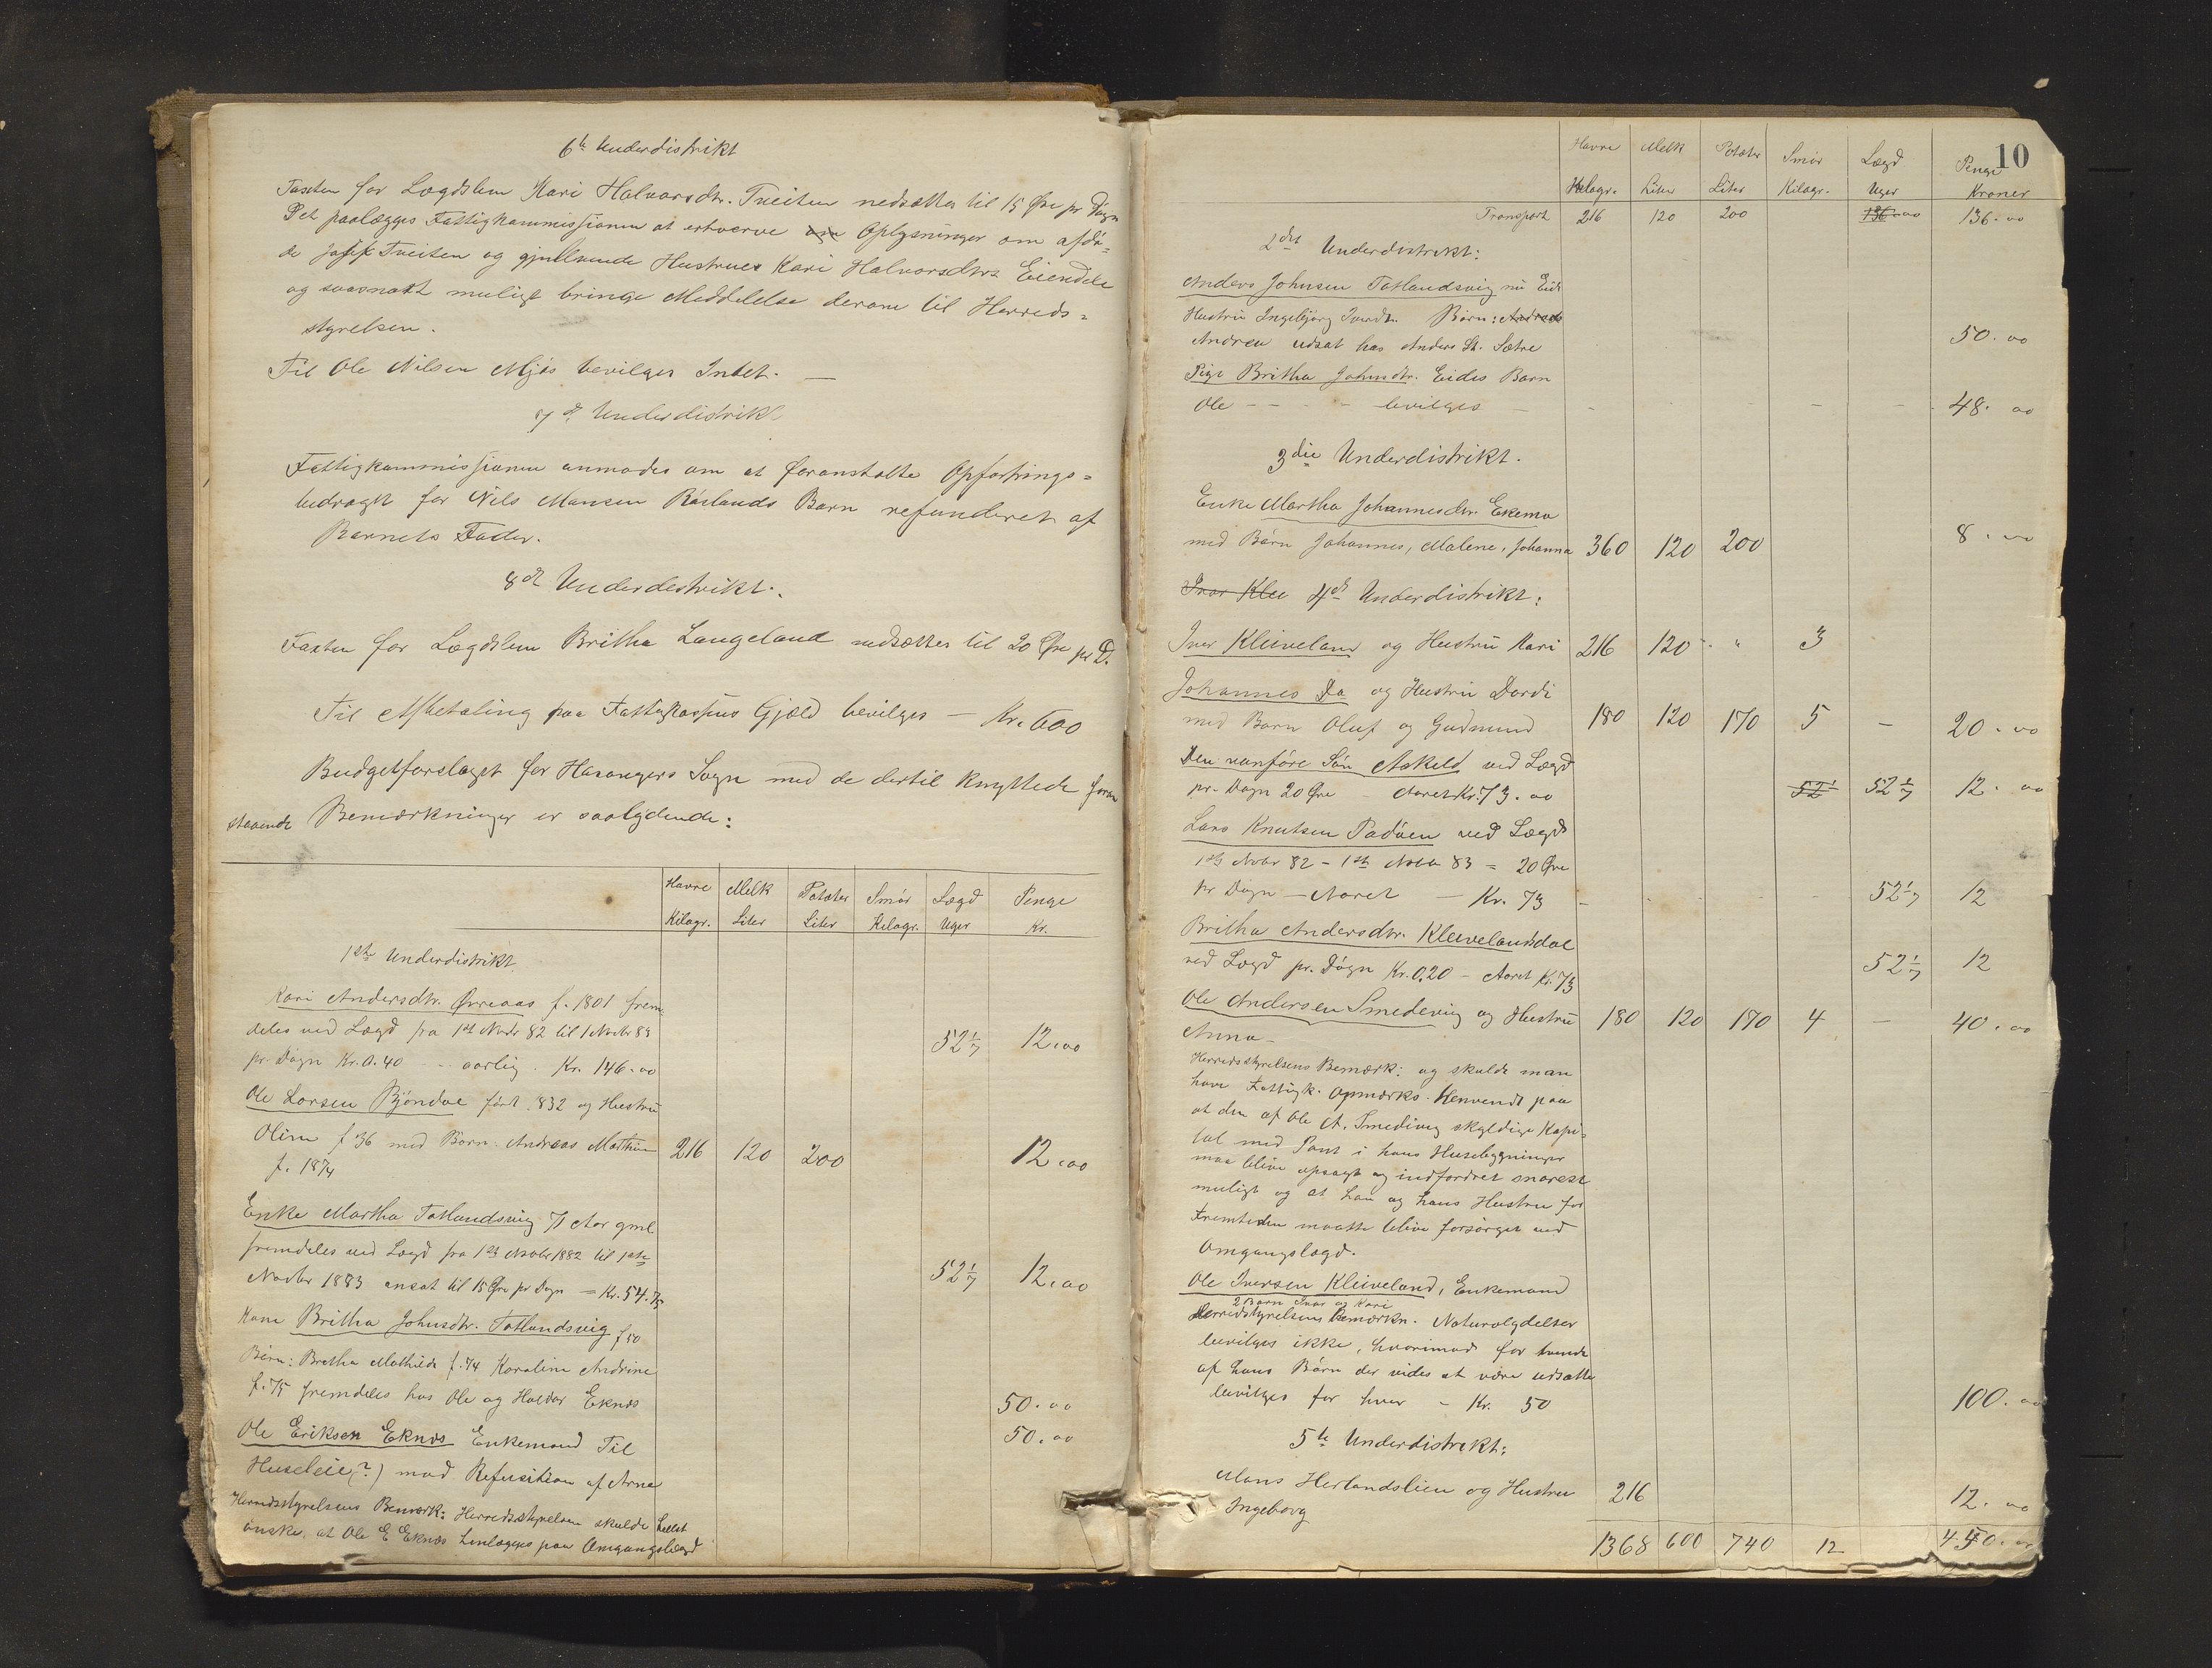 6te Underdistrikt
Taxten for Lægdslem Kari Halvorsdtr. Tveiten nedsættes til 15 Øre pr Døgn
Det paalægges Fattigkommissionen at erhverve om Oplysninger om afdø-
de Josef Tveiten og gjenlevende Hustrues Kari Halvorsdtrs Eiendele
og saasnart muligt bringe Meddelelse derom til Herreds-
styrelsen.
Til Ole Nilsen Mjøs bevilges Intet. —
7de Underdistrikt
Fattigkommissionen anmodes om at foranstalte Opfostrings-
bidraget for Nils Monsen Røslands Barn refunderet af
Barnets Fader.
8de Underdistrikt.
Taxten for Lægdslem Britha Langeland nedsættes til 20 Øre pr D.
Til Afbetaling paa Fattigkassens Gjæld bevilges — Kr. 600
Budgetforslaget for Hosangers Sogn med de dertil knyttede foran
staaende Bemærkninger er saalydende:
Havre Melk Poteter Smør Lægd Penge
Kilogr. Liter Liter Kilogr. Uger Kr.
1ste Underdistrikt
Kari Andersdtr. Ørreaas f. 1801 frem-
deles ved Lægd fra 1st Novbr 82 til 1 Novbr 83
pr. Døgn Kr. 0.40 - - aarlig. Kr. 146.00 52 1/7 12.00
Ole Larsen Bjøndal født 832 og Hustru
Oline f 36 med Børn Andreas Mathias 216 120 200 12.00
f. 1874
Enke Martha Totlandsvig 71 Aar gml.
fremdeles ved Lægd fra 1st Novbr 1882 til 1ste
Novbr 1883 ansat til 15 Øre pr Døgn = Kr. 54.75 52 1/7 12.00
Kone Britha Johnsdtr. Totlandsvig f 50
Børn: Bretha Mathilde f. 74 Karoline Andrine
f. 75 fremdeles hos Ole og Haldor Eknæs 50.00
Ole Eriksen Eknæs Enkemand Til 50.00
Husleie(?) mod Refusition af Arna
Herredsstyrelsens Bemærk: Herredsstyrelsen skulde helst
ønske, at Ole E Eknæs henlægges paa Omgangslægd
10
Havre Melk Poteter Smør Lægd Penge
Kilogr. Liter Liter Kilogr. Uger Kroner
Transport 216 120 200 136.00 136.00
2det Underdistrikt:
Anders Johnsen Totlandsvig nu Eide
Hustru Ingebjørg Iversdtr. Børn: Andreas
Andrea udsat hos Anders St. Sætre 50.00
Pige Britha Johnsdtr. Eides Barn
Ole - - - - bevilges - 48.00
3die Underdistrikt.
Enke Martha Johannesdtr. Ekemo
med Børn Johannes, Malene, Johanna 360 120 200 8.00
Ivar Klei 4de Underdistrikt:
Iver Kleiveland og Hustru Kari 216 120 " 3
Johannes Do og Hustru Dordi
med Barn Oluf og Gudmund 180 120 170 5 — 20.00
Den vanføre Søn Askeld ved Lægd
pr. Døgn 20 Øre - Aaret Kr. 73.00 52 1 52 1/7 12.00
Lars Knutsen Padøen ved Lægd
1ste Novbr 82 - 1ste Novbr 83 = 20 Øre
pr Døgn — Aaret — Kr. 73 52 1/7 12
Britha Andersdtr. Kleivelandsdal
ved Lægd pr. Døgn Kr. 0.20 - Aaret Kr. 73 52 1/7 12
Ole Andersen Smedevig og Hustru 180 120 170 4 — 40.00
Anna -
Herredsstyrelsens Bemærk: og skulde man
have Fattigk. Opmærks. Henvendt paa
at den af Ole A. Smedivig skyldige Kapi-
tal med Pant i hans Husebygninger
maa blive opsagt og indfordret snarest
muligt og at han og hans Hustru for
Fremtiden maatte blive forsørget ved
Omgangslægd.
Ole Iversen Kleiveland, Enkemand
2 Børn Ivar og Kari
Herredsstyrelsens Bemærkn. Naturalydelser
bevilges ikke, hvorimod for tvende
af hans Børn der vides at være udsatte
bevilges for hver - Kr. 50 100.00
5te Underdistrikt:
Mons Herlandslien og Hustru 216 12.00
Ingeborg
1368 600 740 12 450.00